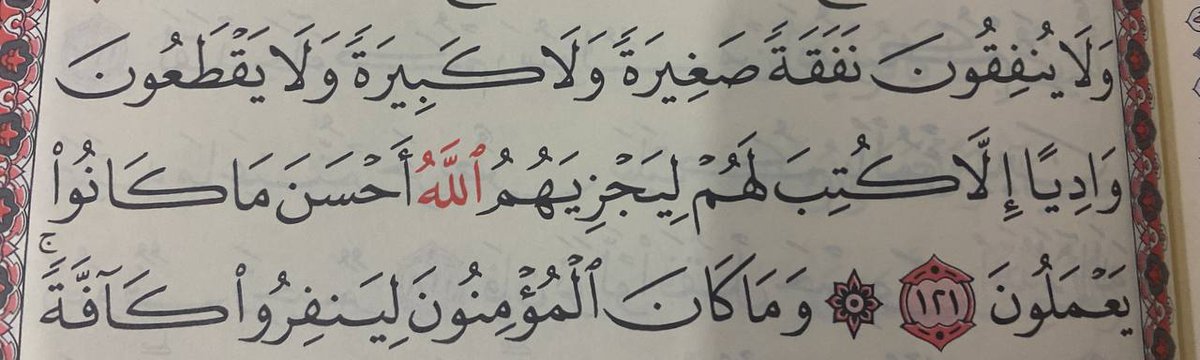 وَلَا يُنفِقُونَ نَفَقَةً صَغِيرَةً وَلَا كَبِيرَةً وَلَا يَقْطَعُونَ
وَادِيًا إِلَّا كُتِبَ لَهُمْ لِيَجْزِيَهُمُ ٱللَّهُ أَحْسَنَ مَا كَانُوا۟
يَعْمَلُونَ ١٢١ ۞ وَمَا كَانَ ٱلْمُؤْمِنُونَ لِيَنفِرُوا۟ كَآفَّةً ۚ